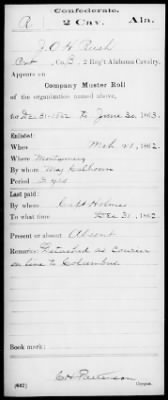 Confederate.
R 2 Cav. Ala.
J. O. H. Rush
Pvt, Co. B, 2 Reg't Alabama Cavalry.
Appears on
Company Muster Roll
of the organization named above,
for Dec 31, 1862 to June 30, 1863.
Enlisted:
When Mch 21, 1862.
Where Montgomery
By whom Maj Calhoun
Period 3 yrs
Last paid:
By whom Capt Holmes
To what time Dec 31, 1862.
Present or absent Absent
Remarks: Detached as courier
on line to Columbus.
Book mark:
(642) Copyist.